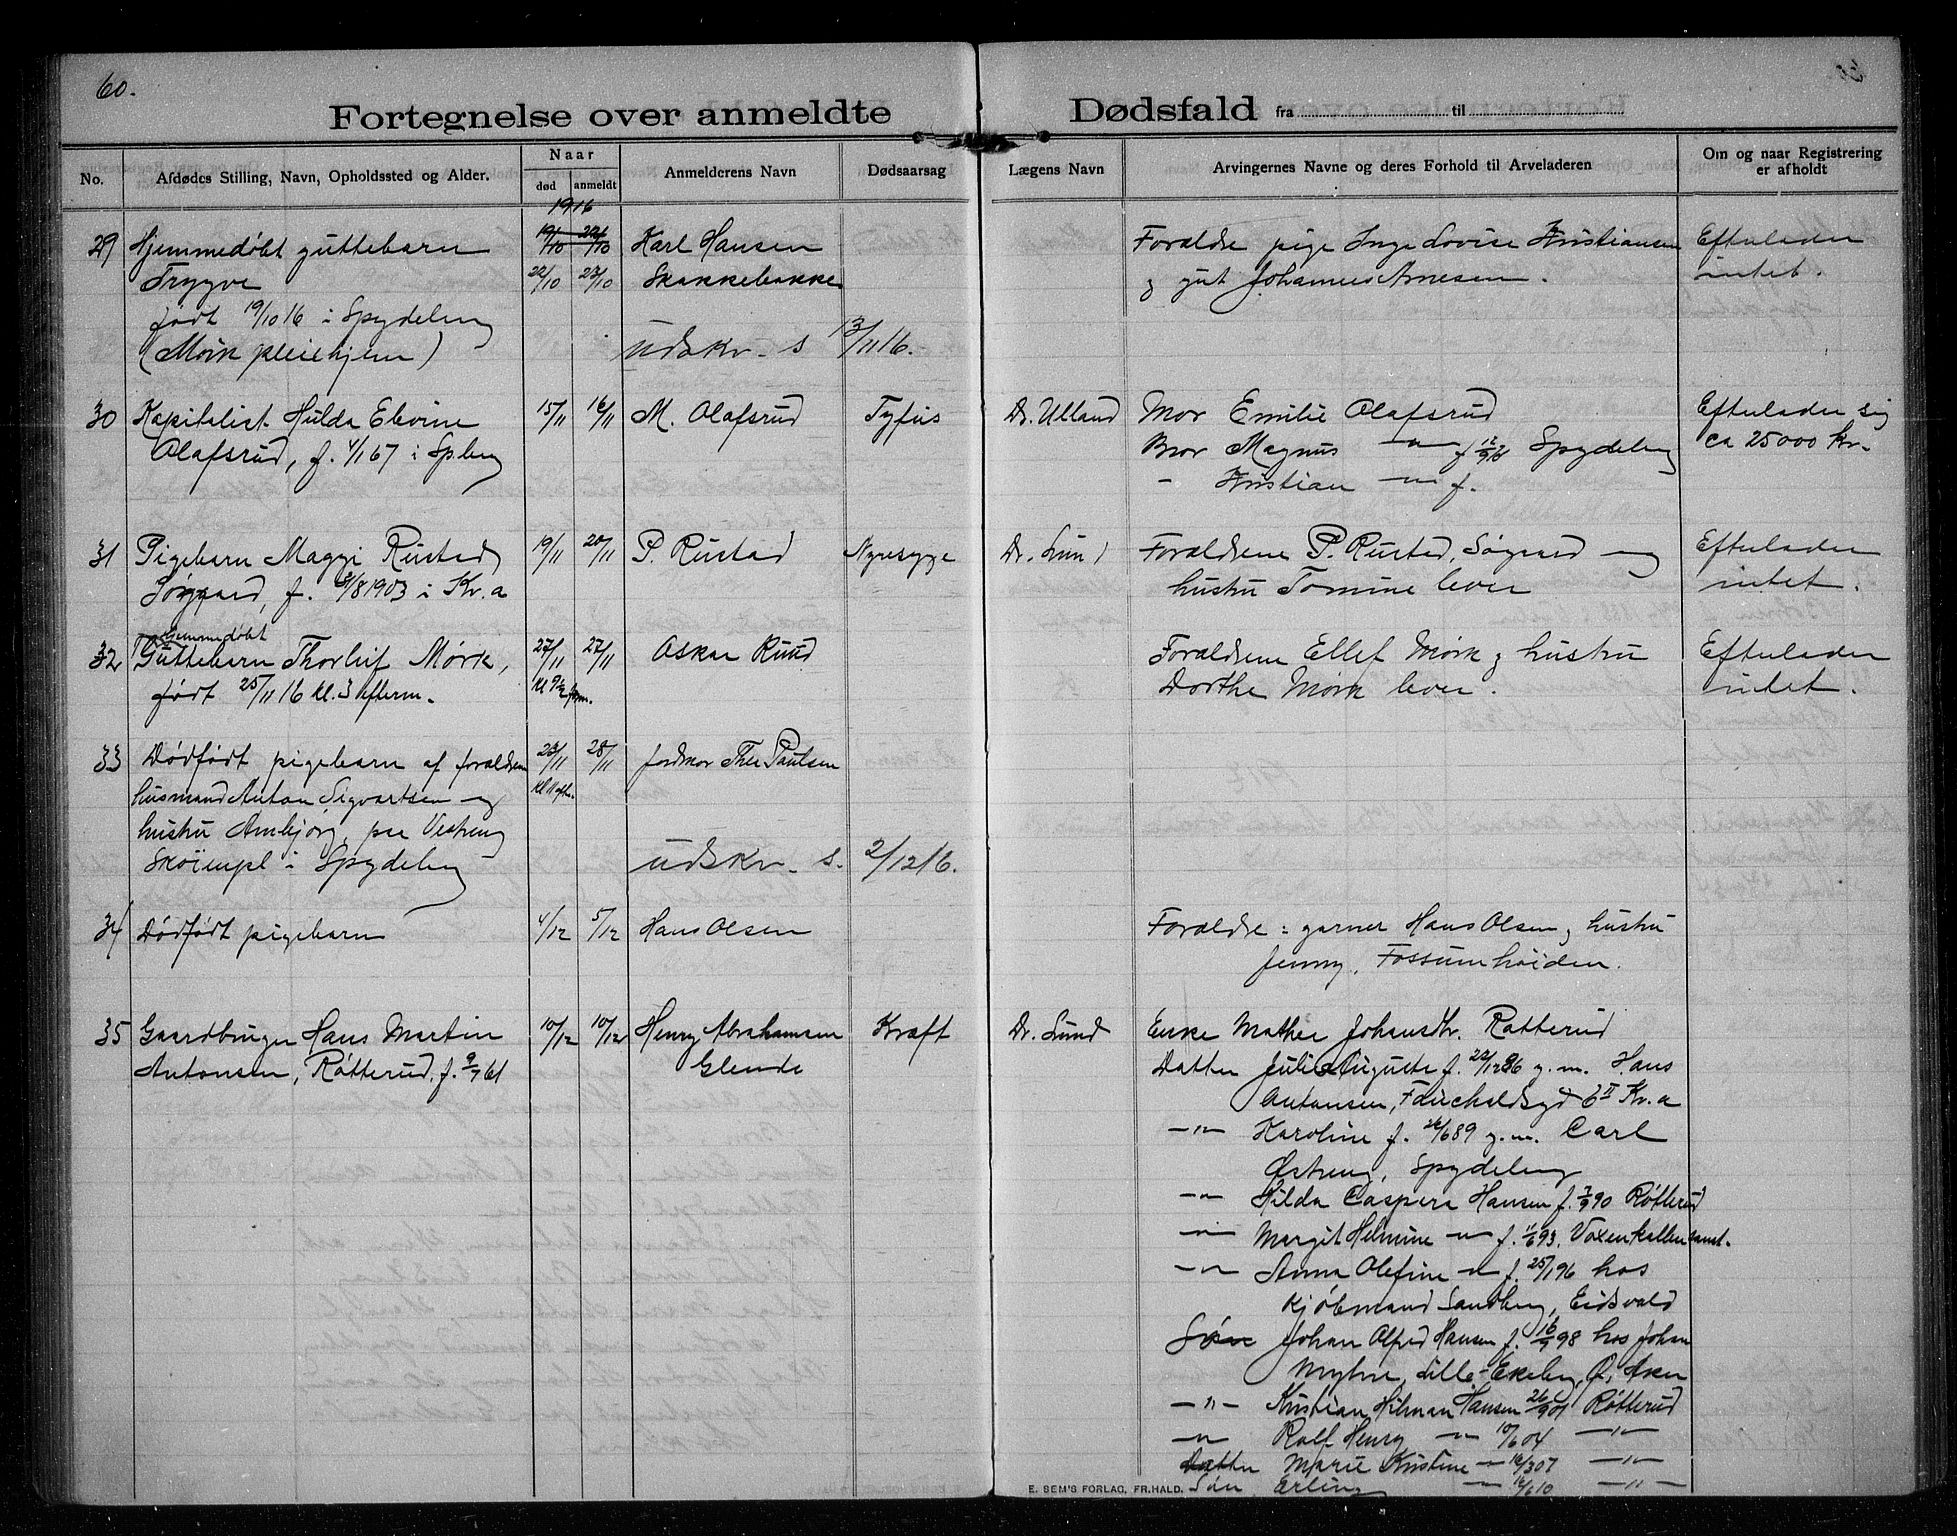 60.
Fortegnelse over anmeldte Dødsfald fra til
No.
Afdødes Stilling, Navn, Opholdssted og Alder.
Naar
død
anmeldt
Anmelderens Navn
Dødsaarsag
Lægens Navn
Arvingernes Navne og deres Forhold til Arveladeren
Om og naar Registrering
er afholdt
1916
29 Hjemmedøbt guttebarn
Trygve
født 19/10 16 i Spydeberg
(Mørk pleiehjem)
19/10 20/10
22/10 23/10
Karl Hansen
Skakkebakke
udskr. s 13/11 16.
Forældre pige Inge Lovise Kristiansen
og gut Johannes Arnesen.
Efterlader
intet.
30 Kapitalist Hulda Elvine
Olafsrud, f. 4/1 67 i Spberg
15/11 16/11
M. Olafsrud
Tyfus
Dr. Ulland
Mor Emilie Olafsrud
Bror Magnus -"- f Spydeberg
" Kristian -"- f.
Efterlader sig
ca 25000 kr.
31 Pigebarn Maggi Rustad
Søgaard, f. /8 1903 i Kr.a
19/11 20/11
P. Rustad
Nyresyge
Dr. Lund
Forældrene P. Rustad, Søgaard og
hustru Tomine lever
Efterlader
intet.
32 Hjemmedøbt
Guttebarn Thorleif Mørk,
født 25/11 16 kl. 3 efterm.
27/11 27/11
Kl 9½ form.
Oskar Ruud
Forældrene Ellef Mørk og hustru
Dorthe Mørk lever.
Efterlader
intet.
33 Dødfødt pigebarn af forældrene
husmand Anton Sigvartsen og
hustru Arnbjørg, paa Vestreng
Skoimpl i Spydeberg
23/11 28/11
Kl 11 efth.
jordmor Thea Paulsen
udskr. s. 2/12 16.
34 Dødfødt pigebarn
4/12 5/12
Hans Olsen
Forældre: garver Hans Olsen og hustru
Jenny, Fossumhøiden.
35 Gaardbruger Hans Martin
Antonsen, Røtterud, f. 9/7 61
10/12 10/12
Henry Abrahamsen
Glende
Kræft
Dr. Lund
Enke Mathea Johansdtr. Røtterud
Datter Julie Auguste f. 22/12 86 g.m. Hans
Antonsen, Fauchaldsgd 6 II Kr.a
-"- Karoline f. 26/6 89 g.m. Carl
Østreng, Spydeberg
-"- Hilda Caspera Hansen f. 7/9 90 Røtterud
-"- Margit Helmine -"- f. 11/6 93, Voxenkollen sanat.
-"- Anna Olefine -"- f. 25/1 96 hos
kjøbmand Sandberg, Eidsvold
Søn Johan Alfred Hansen f. 16/9 98 hos Johan
Myhre, Lille-Ekeberg, Ø. Aker
-"- Kristian Hilman Hansen 26/9 01 Røtterud
-"- Rolf Henry -"- 10/6 04 -"-
Datter Marie Kristine -"- 16/3 07 -"-
Søn Erling -"- 16/6 10 -"-
E. SEM'S FORLAG, FR.HALD.